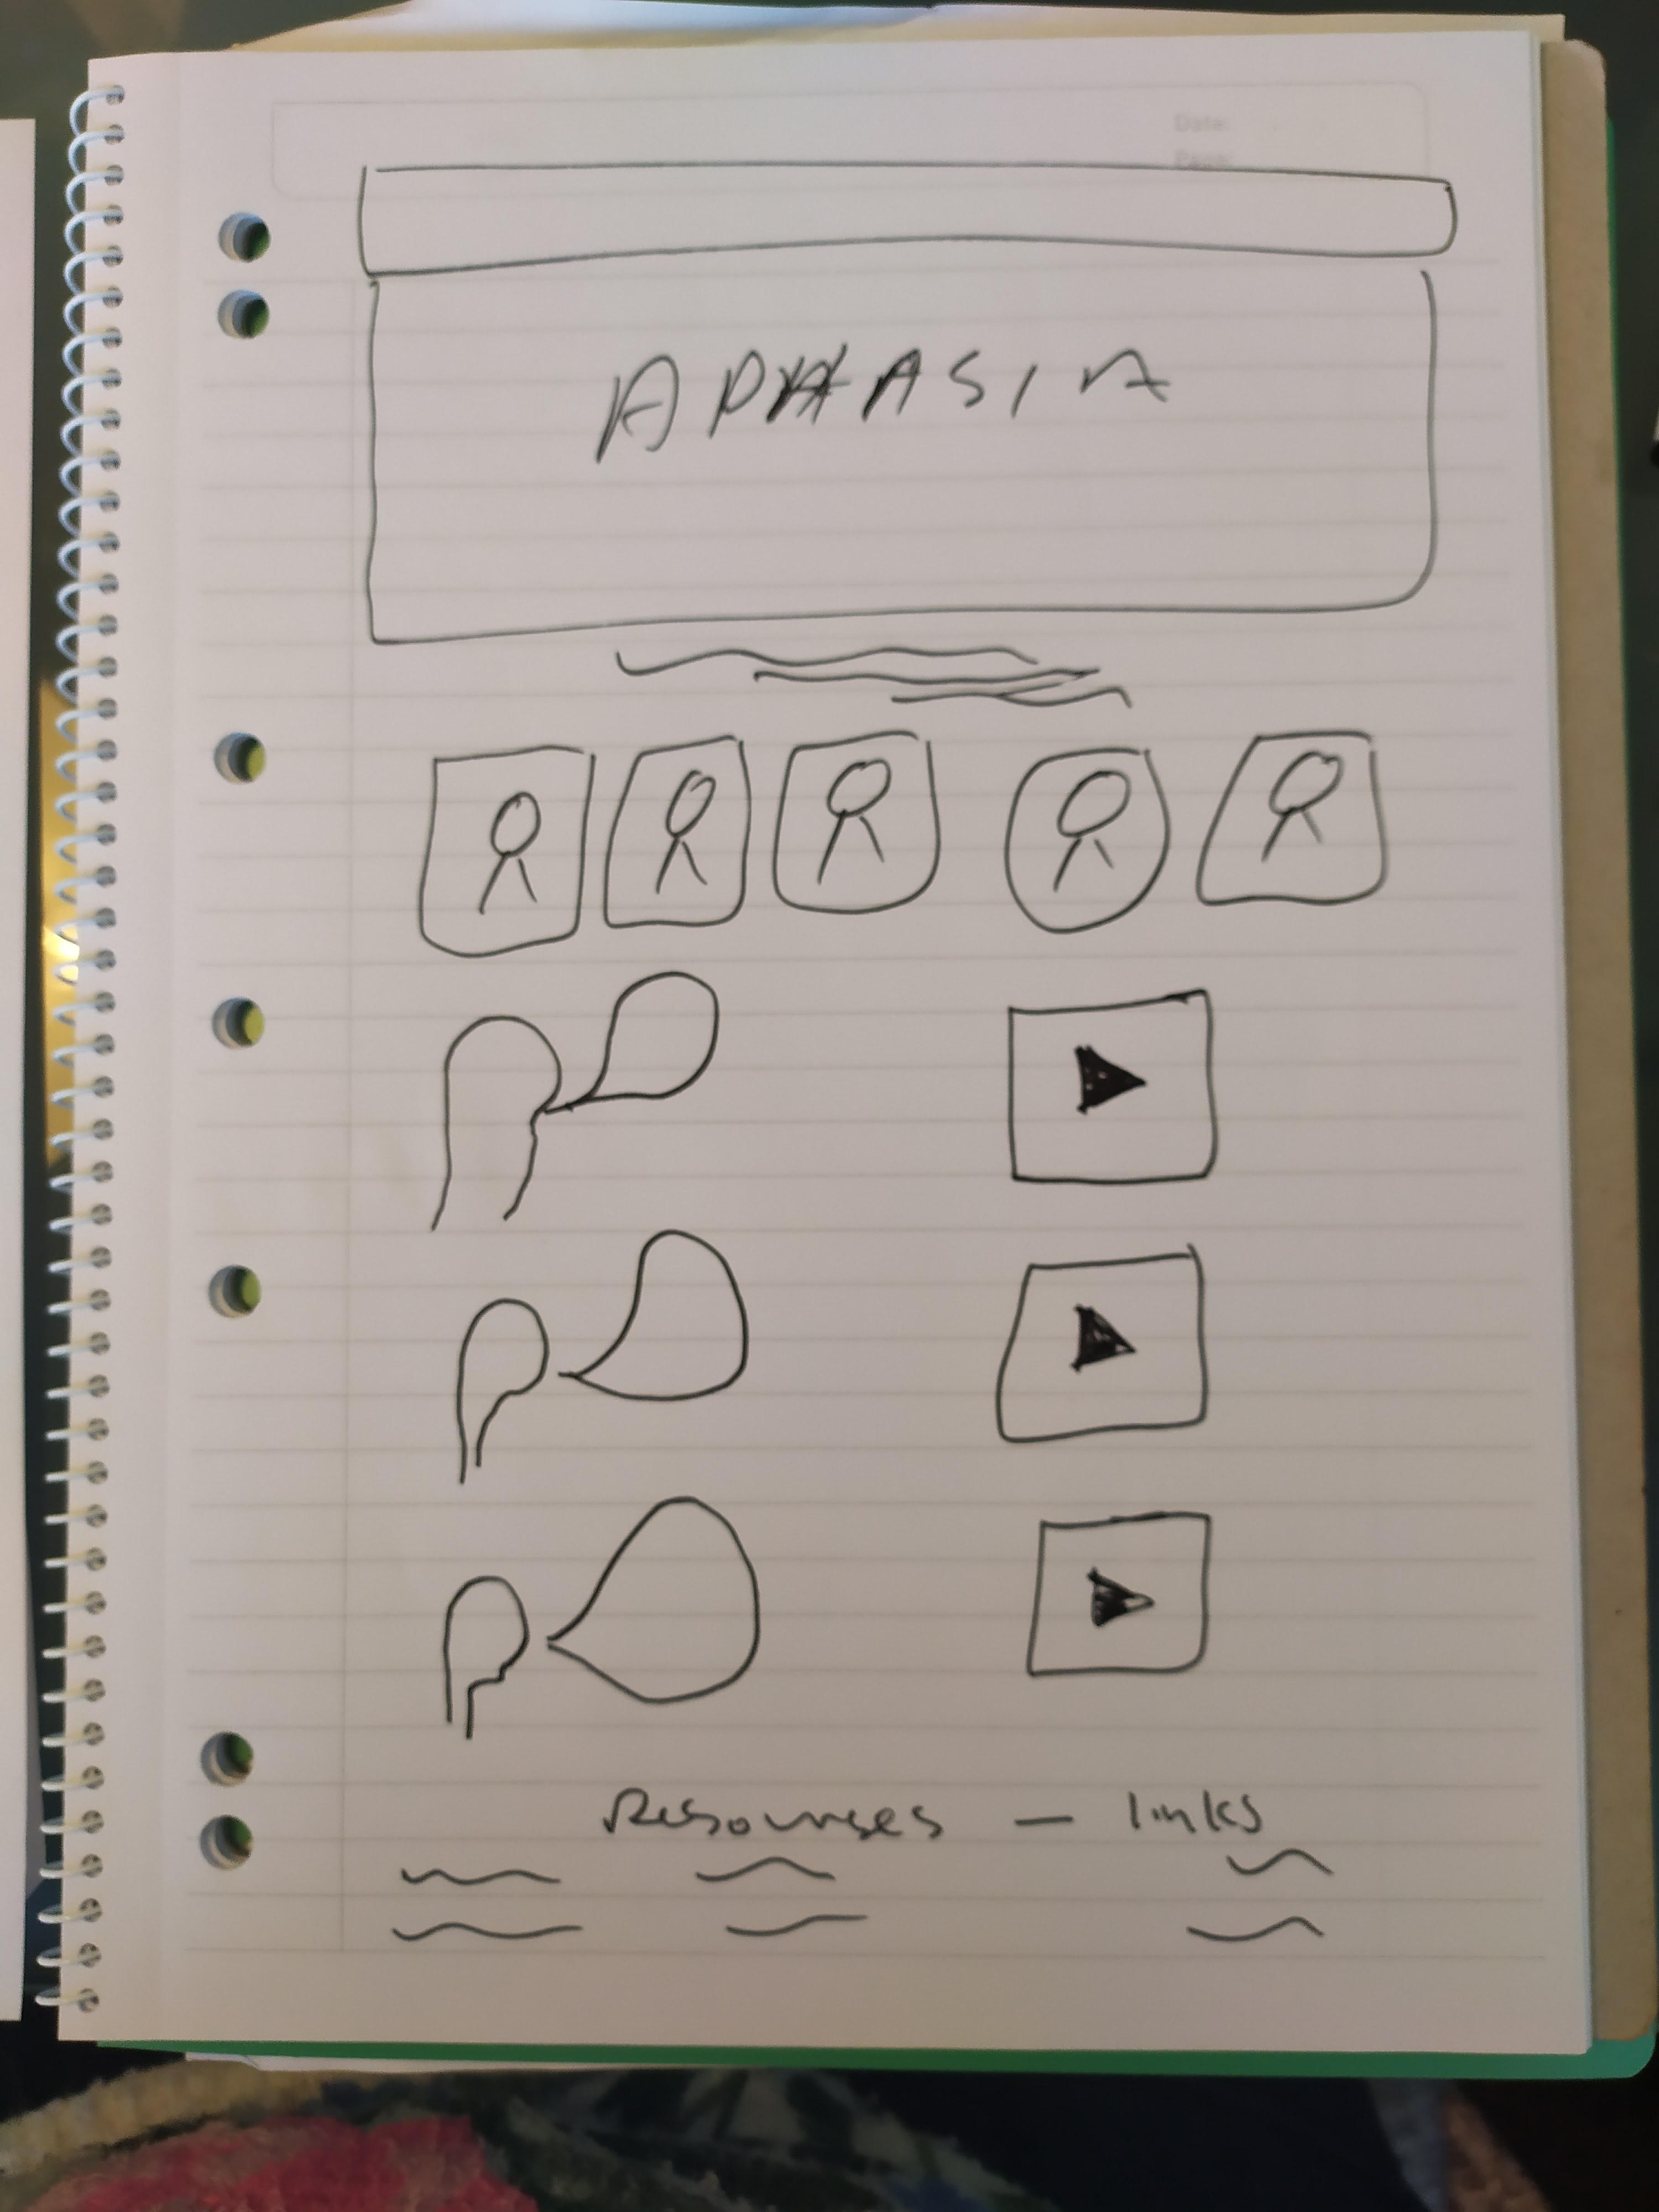 Date:
Page:
APHASIA
Resourses — links